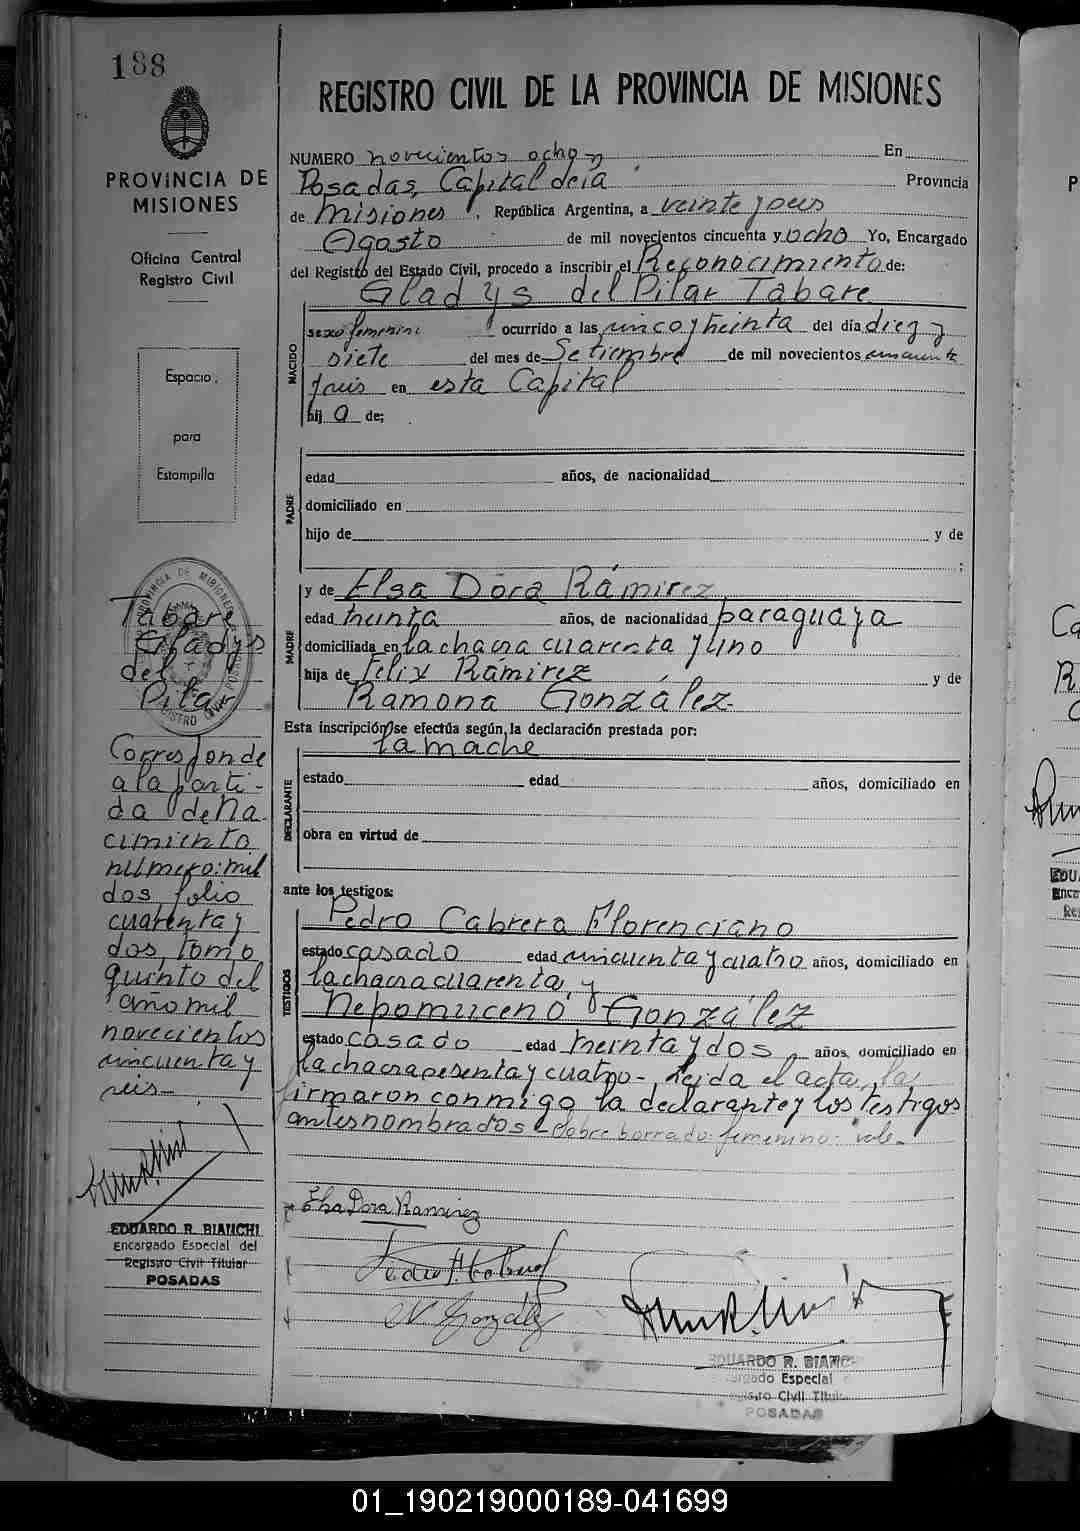 188
PROVINCIA DE
MISIONES
Oficina Central
Registro Civil
Espacio
para
Estampilla
Tabare
Gladys
del
Pilar
Corresponde
a la parti-
da de na
cimiento
número: mil
dos, folio
cuarenta y
dos, tomo
quinto del
año mil
novecientos
cincuenta y
seis-
EDUARDO R. BIANCHI
Encargado Especial del
Registro Civil Titular
POSADAS
REGISTRO CIVIL DE LA PROVINCIA DE MISIONES
NUMERO novecientos ocho En
Posadas, Capital de la Provincia
de Misiones, República Argentina, a veinte y seis
Agosto de mil novecientos cincuenta y ocho Yo, Encargado
del Registro del Estado Civil, procedo a inscribir el Reconocimiento de:
Gladys del Pilar Tabare
NACIDO
sexo femenino ocurrido a las cinco y treinta del día diez y
siete del mes de Setiembre de mil novecientos cincuenta
y seis en esta Capital
hij a de;
PADRE
edad años, de nacionalidad
domiciliado en
hijo de y de
;
MADRE
y de Elsa Dora Rámirez
edad treinta años, de nacionalidad paraguaya
domiciliada en la chacra cuarenta y uno
hija de Félix Rámirez y de
Ramona González-
Esta inscripción se efectúa según la declaración prestada por:
la madre
DECLARANTE
estado edad años, domiciliado en
obra en virtud de
ante los testigos:
TESTIGOS
Pedro Cabrera Florenciano
estado casado edad cincuenta y cuatro años, domiciliado en
la chacra cuarenta, y
Nepomuceno González
estado casado edad treinta y dos años, domiciliado en
la chacra sesenta y cuatro-, leida el acta, la
firmaron conmigo la declarante y los testigos
antes nombrados- Sobre borrado: femenino: vale-
Elsa Dora Ramirez
N. González
EDUARDO R. BIANCHI
Encargado Especial d
Registro Civil Titular
POSADAS
P
Ca
R
EDUA
Enca
Re
01_190219000189-041699